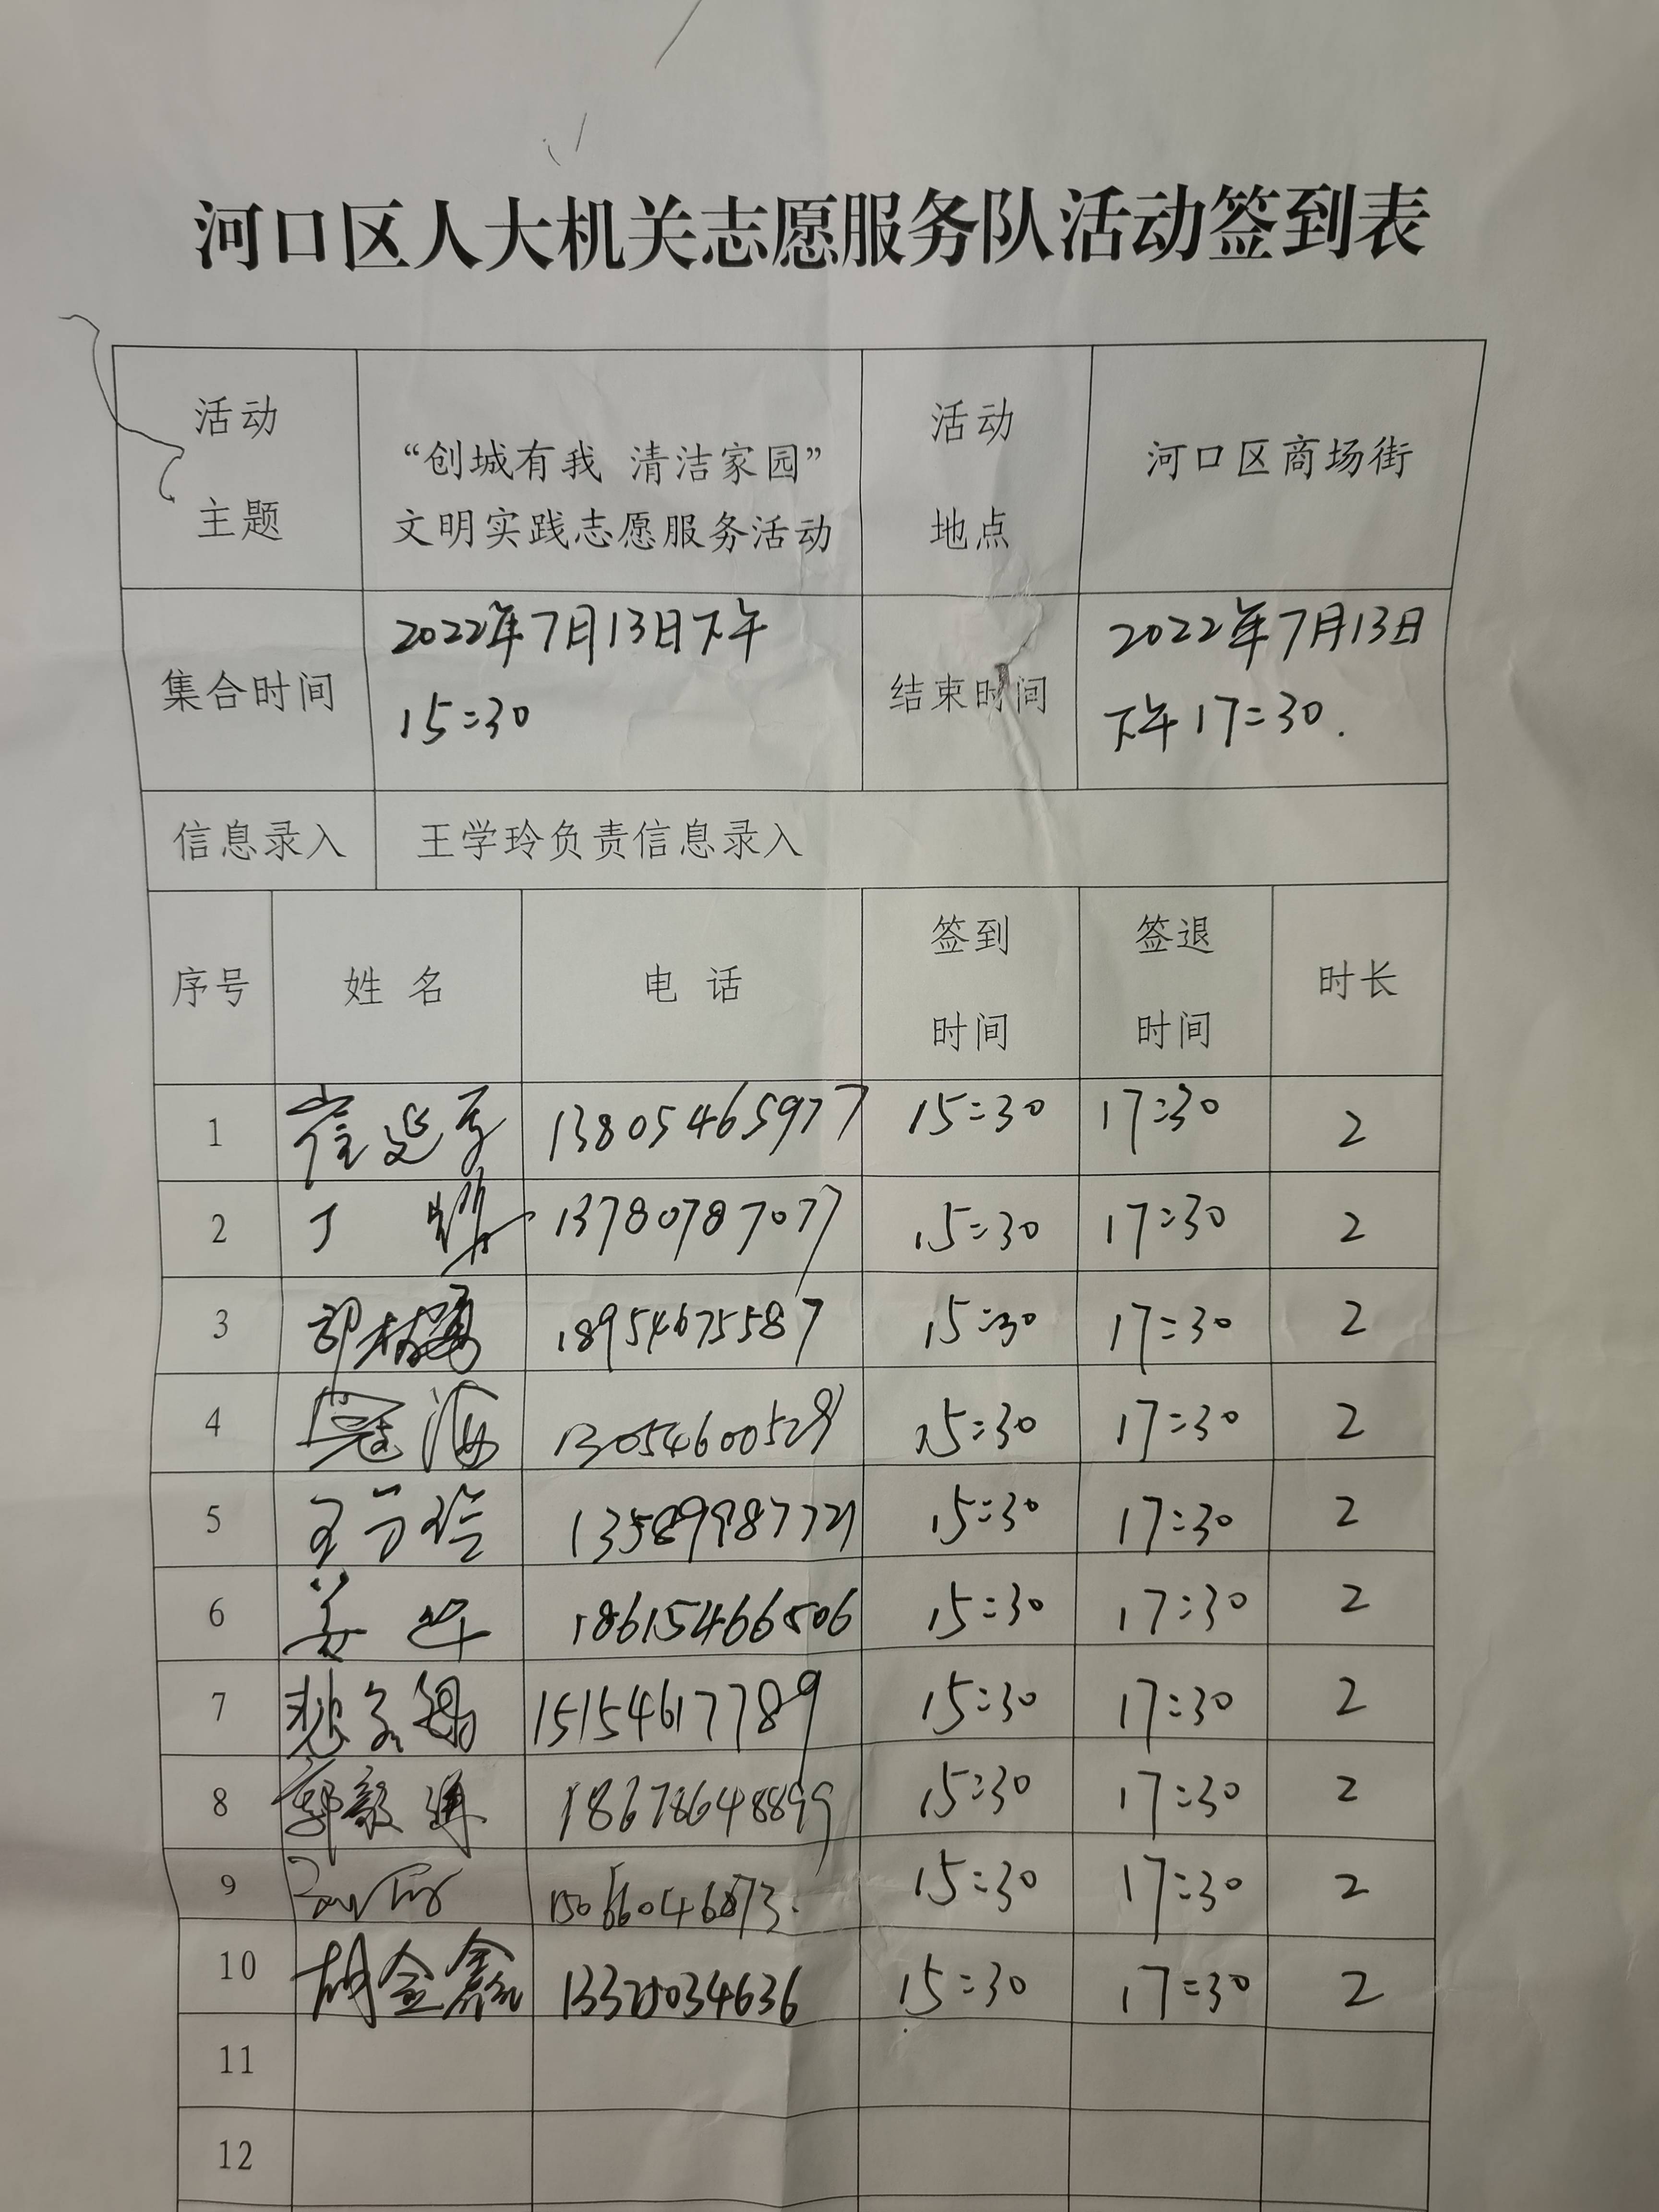 河口区人大机关志愿服务队活动签到表
活动
主题
“创城有我 清洁家园”
文明实践志愿服务活动
活动
地点
河口区商场街
集合时间
2022年7月13日下午
15:30
结束时间
2022年7月13日
下午17:30.
信息录入
王学玲负责信息录入
序号 姓名 电话 签到时间 签退时间 时长
1 崔延 13805465977 15:30 17:30 2
2 丁 13780787077 15:30 17:30 2
3 18954675587 15:30 17:30 2
4 寇海 13054600529 15:30 17:30 2
5 王学玲 13589987721 15:30 17:30 2
6 姜 18615466506 15:30 17:30 2
7 15154617789 15:30 17:30 2
8 郭毅 18678648899 15:30 17:30 2
9 15:30 17:30 2
10 胡金鑫 15:30 17:30 2
11
12